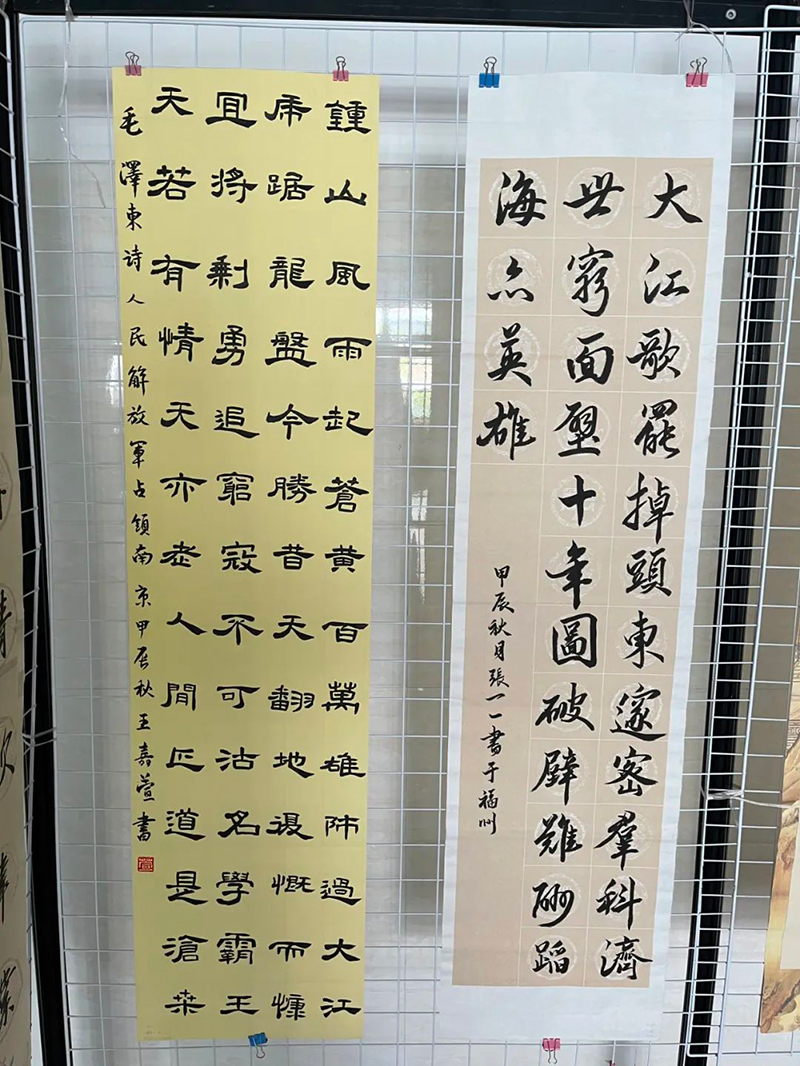 大江歌罷掉頭東邃密羣科濟
世窮面壁十年圖破壁難酬蹈
海亦英雄
甲辰秋月張一一書于福州
鍾山風雨起蒼黃百萬雄師過大江
虎踞龍盤今勝昔天翻地覆慨而慷
宜將剩勇追窮寇不可沽名學霸王
天若有情天亦老人間正道是滄桑
毛澤東诗人民解放軍占領南京甲辰秋王嘉萱書